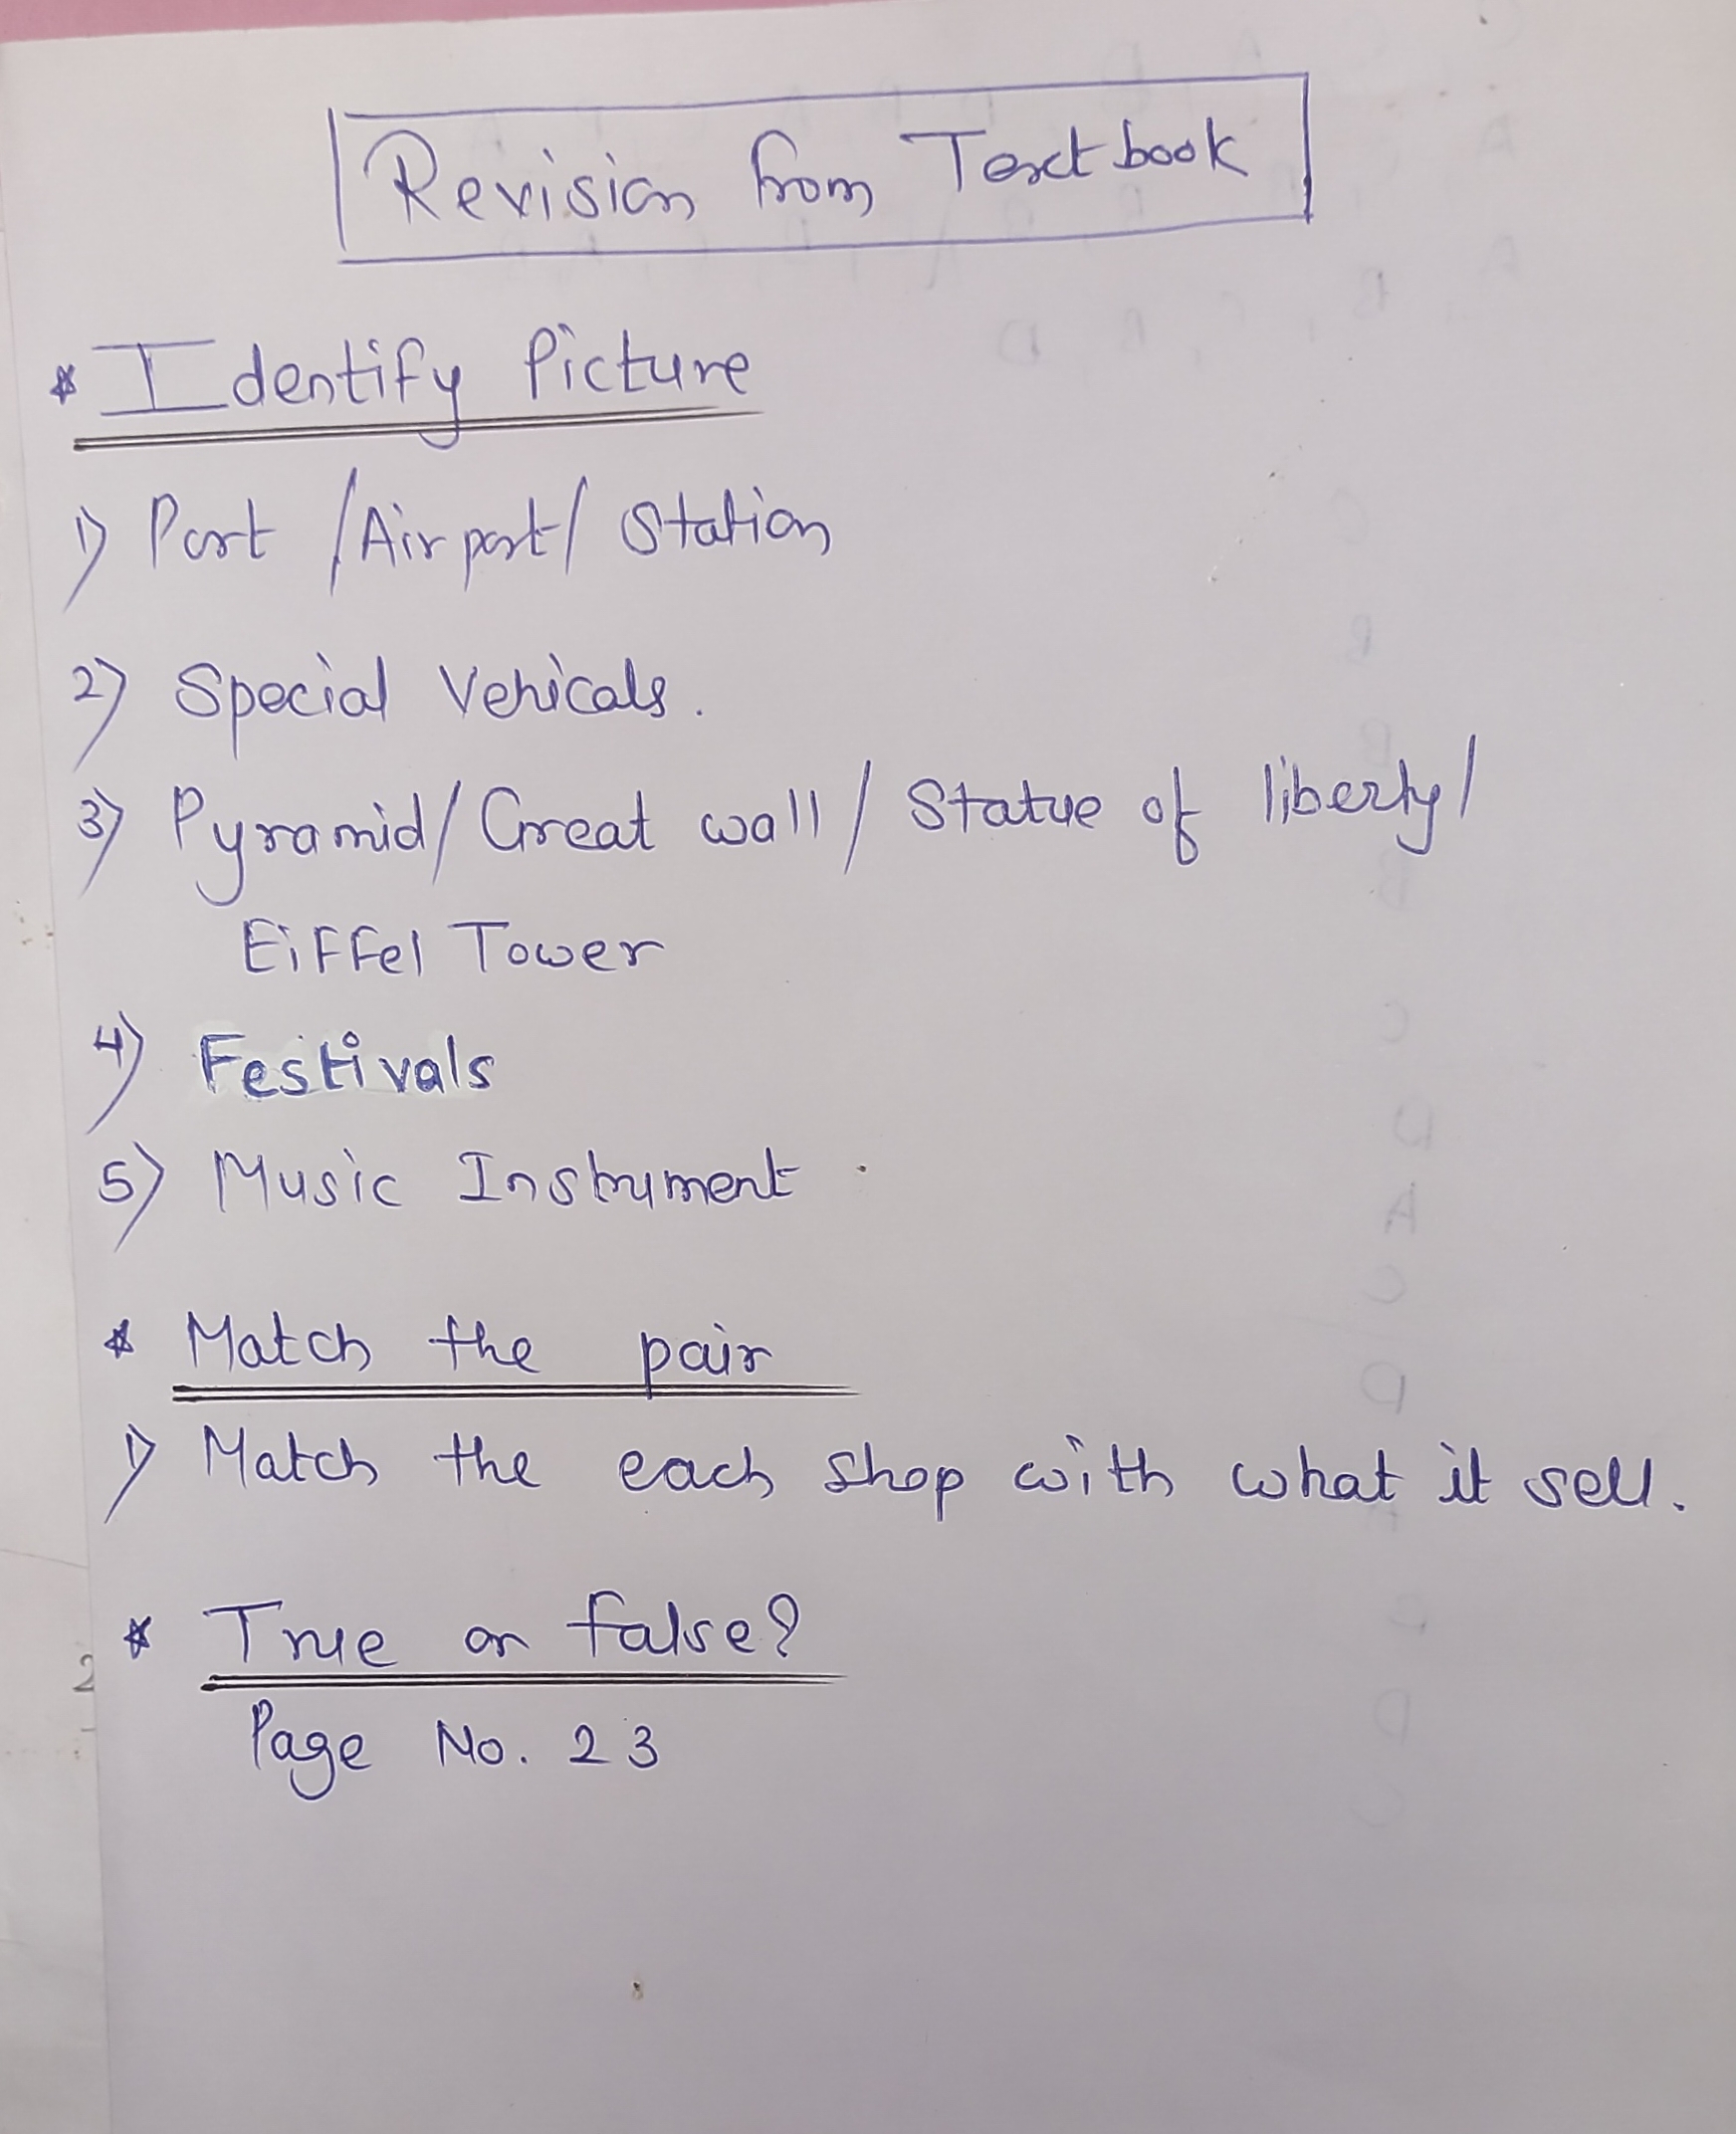 Revision from Textbook
* Identify Picture
1) Port / Airport / Station
2) Special Vehicals.
3) Pyramid / Great wall / Statue of liberty /
Eiffel Tower
4) Festivals
5) Music Instrument .
* Match the pair
1) Match the each shop with what it sell.
* True or false?
Page No. 23
2